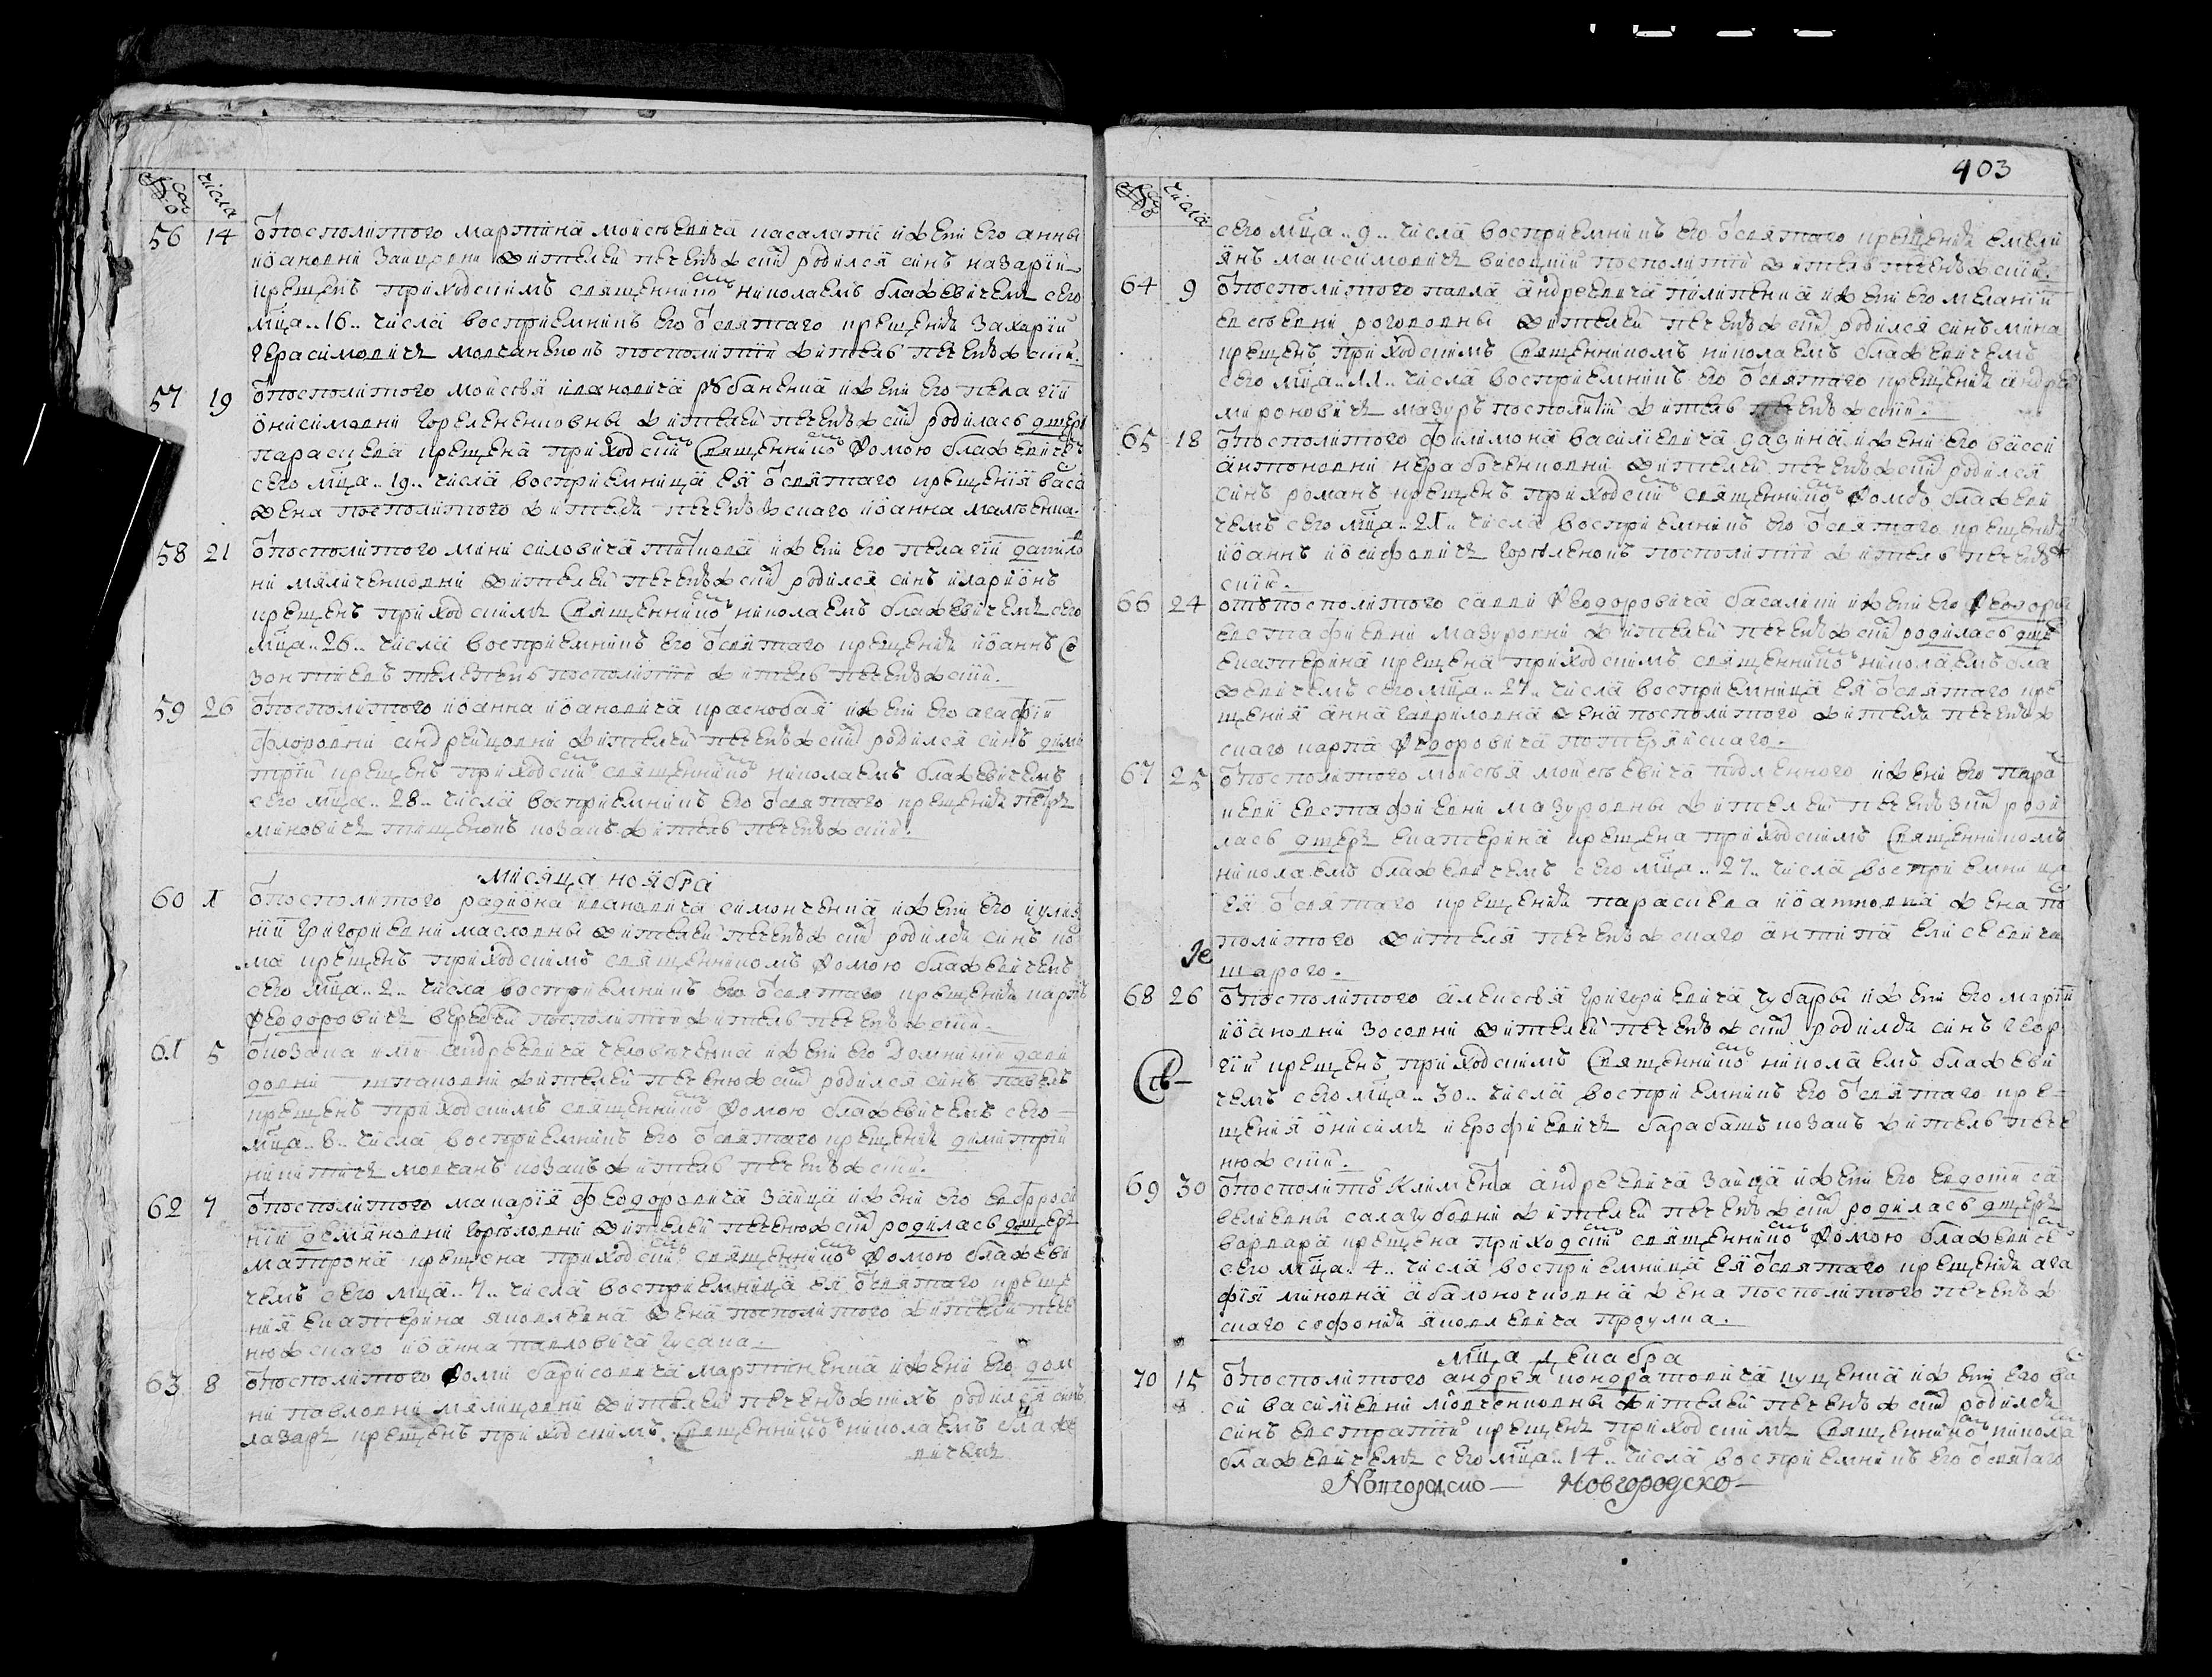 число
56 14 Ѿ посполитого мартина моисѣевича касалапи и жени его анны
иоановни заицовни жителей печенѣжский родился синъ назарий
крещенъ приходскимъ священникомъ николаемъ блажевичемъ сего
мца .. 16 .. числа восприемникъ его Ѿ святаго крещения захарий
герасимовичъ молчаненокъ посполитий житель печенѣжский.
57 19 Ѿ посполитого моисѣя ивановича рѣбаненка и жени его пелагии
онисимовни гореленковны жителей печенѣжский родилась дщерь
параскева крещена приходским священником ѳомою блажевичемъ
сего мца .. 19 .. числа восприемница ея Ѿ святаго крещения васа
жена посполитого жителя печенѣжскаго иоанна малѣенка.
58 21 Ѿ посполитого мини силовича титкова и жени его пелагии данило
ни мяличенковни жителей печенѣжский родился синъ иларионъ
крещенъ приходскимъ священником николаемъ блажевичемъ сего
мца .. 26 .. числа восприемникъ его Ѿ святаго крещения иоаннъ со
зонтиевъ телепенъ посполитий житель печенѣжский.
59 26 Ѿ посполитого иоанна иоановича краснобая и жени его агафии
флоровни андрейцовни жителей печенѣжский родился синъ дими
трий крещенъ приходским священником николаемъ блажевичемъ
сего мца .. 28 .. числа восприемникъ его Ѿ святаго крещения петръ
миновичъ тищенокъ козакъ житель печенѣжский.
мисяца ноября
60 1 Ѿ посполитого радиона ивановича симонченка и жени его иулия
нии григориевни масловны жителей печенѣжский родился синъ ко
ма крещенъ приходскимъ священникомъ ѳомою блажевичемъ
сего мца .. 2 .. числа восприемникъ его Ѿ святаго крещения карпъ
ѳеодоровичъ веребей посполитой житель печенѣжский.
61 5 Ѿ козака или андреевича человеченка и жени его домникии дави
довни шпаковни жителей печенюжский родился синъ павелъ
крещенъ приходскимъ священником ѳомою блажевичемъ сего
мца .. 8 .. числа восприемникъ его Ѿ святаго крещения димитрий
никитичъ молчанъ козакъ житель печенѣжский.
62 7 Ѿ посполитого макария феодоровича зайца и жени его евфроси
нии демяновни горѣловни жителей печенюжский родилась дщерь
матрона крещена приходским священником ѳомою блажеви
чемъ сего мца .. 7 .. числа восприемница ея Ѿ святаго креще
ния екатерина яковлевна жена посполитого жителя пече
нюжскаго иоанна павловича гусака.
63 8 Ѿ посполитого ѳоми барисовича мартиненка и жени его дом
ни павловни мялицовни жителей печенѣжкихъ родился синъ
лазаръ крещенъ приходскимъ священником николаемъ блаже
вичемъ
403
число
сего мца .. 9 .. числа восприемникъ его Ѿ святаго крещения емели
янъ максимовичъ високий посполитий житель печенѣжский.
64 9 Ѿ посполитого павла андреевича пилипенка и жени его мелании
евсѣевни рогововны жителей печенѣжский родился синъ мина
крещенъ приходскимъ священникомъ николаемъ блажевичемъ
сего мца .. 11 .. числа восприемникъ его Ѿ святаго крещения андрей
мироновичъ мазуръ посполитий житель печенѣжский.
65 18 Ѿ посполитого филимона василиевича дадина и жени его васси
антоновни нерабоченковни жителей печенѣжский родился
синъ романъ крещенъ приходским священником ѳомою блажеви
чемъ сего мца .. 21 .. числа восприемникъ его Ѿ святаго крещения
иоаннъ иосифовичъ горѣленокъ посполитий житель печенѣж
ский.
66 24 отъ посполитого савви ѳеодоровича басалики и жени его ѳеодоры
евстафиевни мазуровни жителей печенѣжский родилась дще
екатерина крещена приходскимъ священником николаемъ бла
жевичемъ сего мца .. 27 .. числа восприемница ея Ѿ святаго кре
щения анна гавриловна жена посполитого жителя печенѣж
скаго карпа ѳедоровича потерайскаго.
67 25 Ѿ посполитого моисѣя моисѣевича подленного и жени его пара
скеви евстафиевни мазуровны жителей печенѣзкий роди
лась дщерь екатерина крещена приходскимъ священникомъ
николаемъ блажевичемъ сего мца .. 27 .. числа восприемница
ея Ѿ святаго крещения параскева иоановна жена пос
политого жителя печенѣжскаго антипа елисеевича
шарого.
68 26 Ѿ посполитого алексѣя григориевича чубары и жени его марии
иоановни зосовни жителей печенѣжский родился синъ геор
гий крещенъ приходскимъ священником николаемъ блажеви
чемъ сего мца .. 30 .. числа восприемникъ его Ѿ святаго кре
щения онисимъ иерофиевичъ барабашъ козакъ житель пече
нюжский.
69 30 Ѿ посполитого климента андреевича зайца и жени его евдокии са
велиевны салагубовни жителей печенѣжский родилась дщерь
варвара крещена приходским священником ѳомою блажевичем
сего мца .. 4 .. числа восприемница ея Ѿ святаго крещения ага
фия миновна абалоночковна жена посполитого печенѣж
скаго софония яковлевича проулка.
мца декабра
70 15 Ѿ посполитого андрея кондратовича куценка и жени его вас
си василиевни молченковны жителей печенѣжский родился
синъ евстратий крещенъ приходскимъ священником никола
блажевичемъ сего мца .. 14 .. числа восприемникъ его Ѿ святаго
Новгородско— Новгородско—